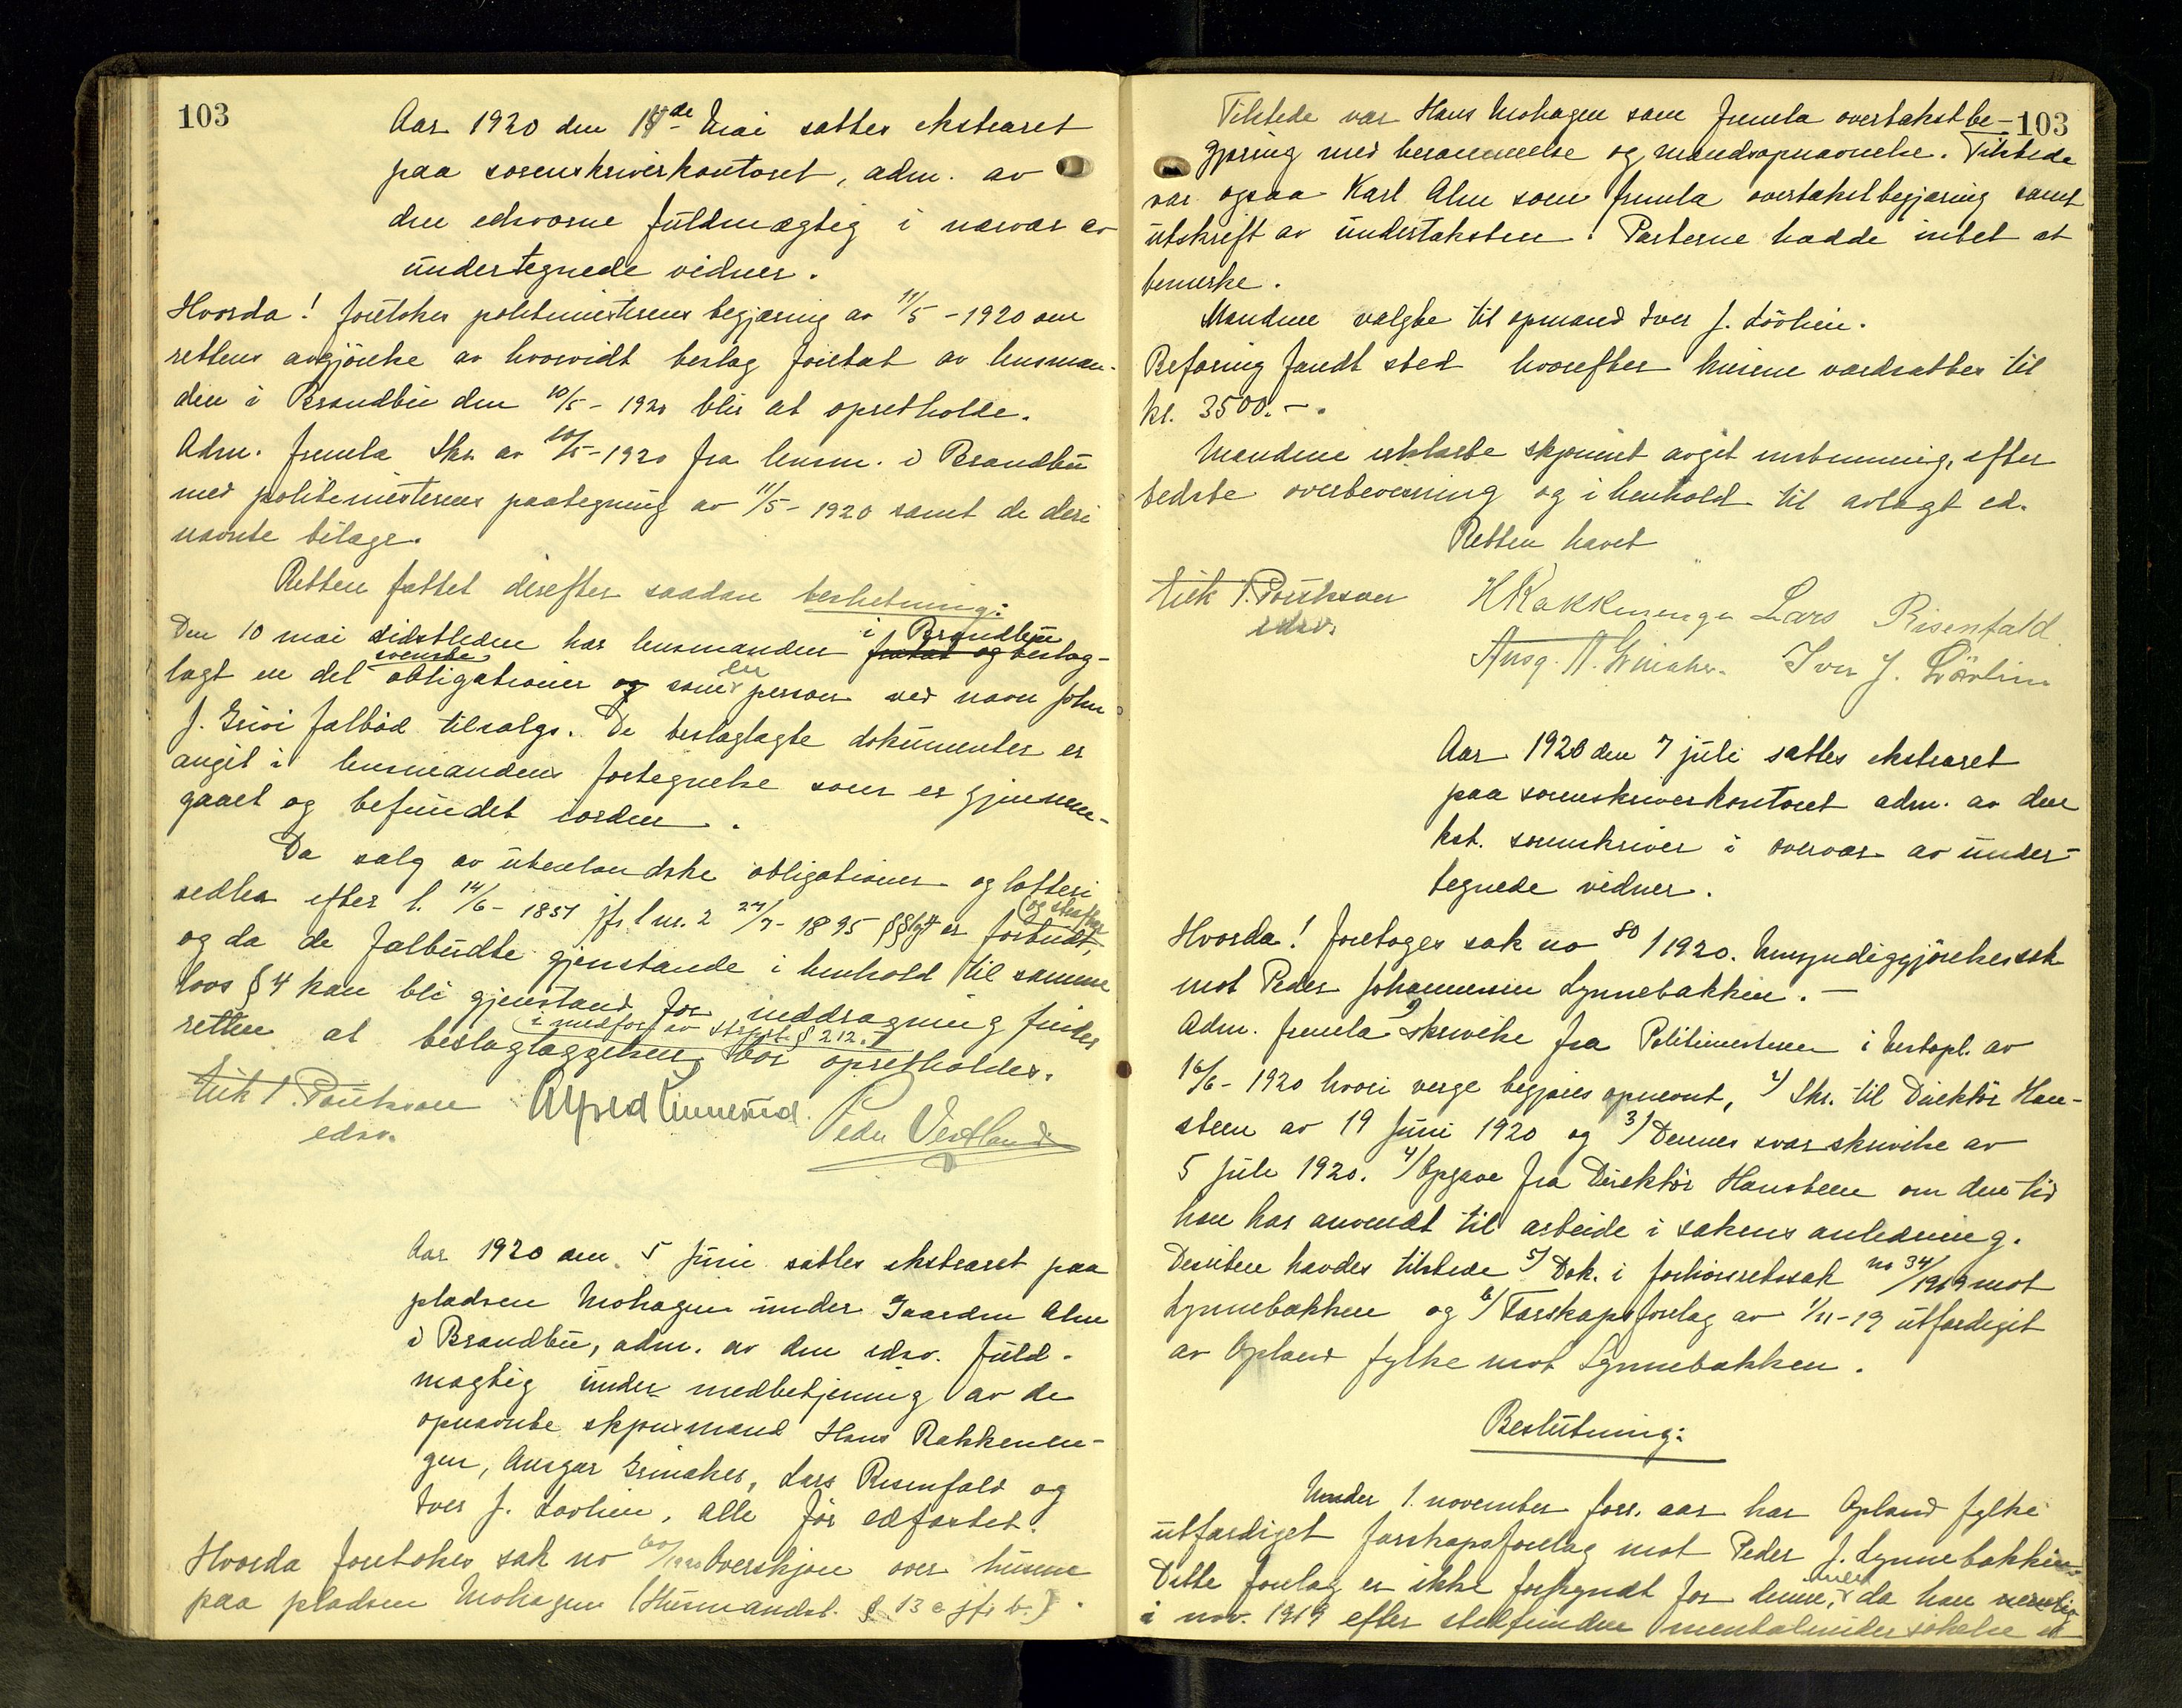 103
Aar 1920 den 18de Mai sattes ekstraret
paa sorenskriverkontoret, adm. av
den edsvorne fuldmægtig i nærvær av
undertegnede vidner.
Hvorda! foretokes politimesterens begjæring av 11/5-1920 om
rettens avgjørelse av hvorvidt beslag foretat av lensman-
den i Brandbu den 10/5-1920 blir at opretholde.
Adm. fremla Skr. av 10/5-1920 fra lensm. i Brandbu
med politimesterens paategning av 11/5-1920 samt de deri
nævnte bilage.
Retten fattet derefter saadan beslutning:
Den 10 mai sidstleden har lensmanden i Brandbu beslag-
lagt en del svenske obligationer som en person ved navn John
J. Grini falbød tilsalgs. De beslaglagte dokumenter er
angit i lensmandens fortegnelse som er gjennem-
gaaet og befundet iorden.
Da salg av utenlandske obligationer og lotteri
sedler efter l. 14/6-1851 jfr l nr. 2 27/7-1895 §§ 1 er forbudt, og strafbar
og da de falbudte gjenstande i henhold til samme
lovs § 4 kan bli gjenstand for inddragning finder
retten at beslaglæggelsen i medfør av strprl. § 212 bør opretholdes.
Erik P. Poulsson Alfred Linnerud. Peder Vestland
edsv.
Aar 1920 den 5 Juni sattes ekstraret paa
pladsen Mohagen under Gaarden Alm
i Brandbu, adm. av den edsv. fuld-
mægtig under medbetjening av de
opnævnte skjønsmænd Hans Rækkenen-
gen, Ansgar Grinaker, Lars Risenfald og
Iver J. Løvlien, alle før edfæstet.
Hvorda foretokes sak no 60/1920 Overskjøn over husene
paa pladsen Mohagen (Husmandsl. § 13 c jfr b.)
103
Tilstede var Hans Mohagen som fremla overtakstbe-
gjæring med berammelse og mandsopnævnelse. Tilstede
var ogsaa Karl Alm som fremla overtakstbegjæring samt
utskrift av undertaksten. Parterne hadde intet at
bemerke.
Mændene valgte til opmand Iver J. Løvlien.
Befaring fandt sted hvorefter husene værdsattes til
kr. 3500.-.
Mændene erklærte skjønnet avgit enstemmig, efter
bedste overbevisning og i henhold til avlagt ed.
Retten hævet
Erik P. Poulsson H Rækkenenge Lars Risenfald
edsv.
Ansg. A. Grinaker. Iver J. Løvlien
Aar 1920 den 7 juli sattes ekstraret
paa sorenskriverkontoret adm. av den
kst. sorenskriver i overvær av under-
tegnede vidner.
Hvorda! foretoges sak no 80/1920. Umyndiggjørelsessak
mot Peder Johannesen Lynnebakken.-
Adm. fremla 1) skrivelse fra Politimesteren i Vestopl. av
16/6-1920 hvori verge begjæres opnevnt, 2) Skr. til Direktør Han-
steen av 19 Juni 1920 og 3) Dennes svarskrivelse av
5 Juli 1920. 4) Opgave fra Direktør Hansteen om den tid
han har anvendt til arbeide i sakens anledning.
Desuten havdes tilstede 5) Dok. i forhørsretssak no 34/1919 mot
Lynnebakken og 6) Farskapsforelæg av 1/11-19 utfærdiget
av Opland fylke mot Lynnebakken.
Beslutning:
Under 1. november forr. aar har Opland fylke
utfærdiget farskapsforelæg mot Peder J. Lynnebakken.
Dette forelæg er ikke forkyndt for denne, men da han nemlig
i nov. 1919 efter stedfunden mentalundersøkelse er